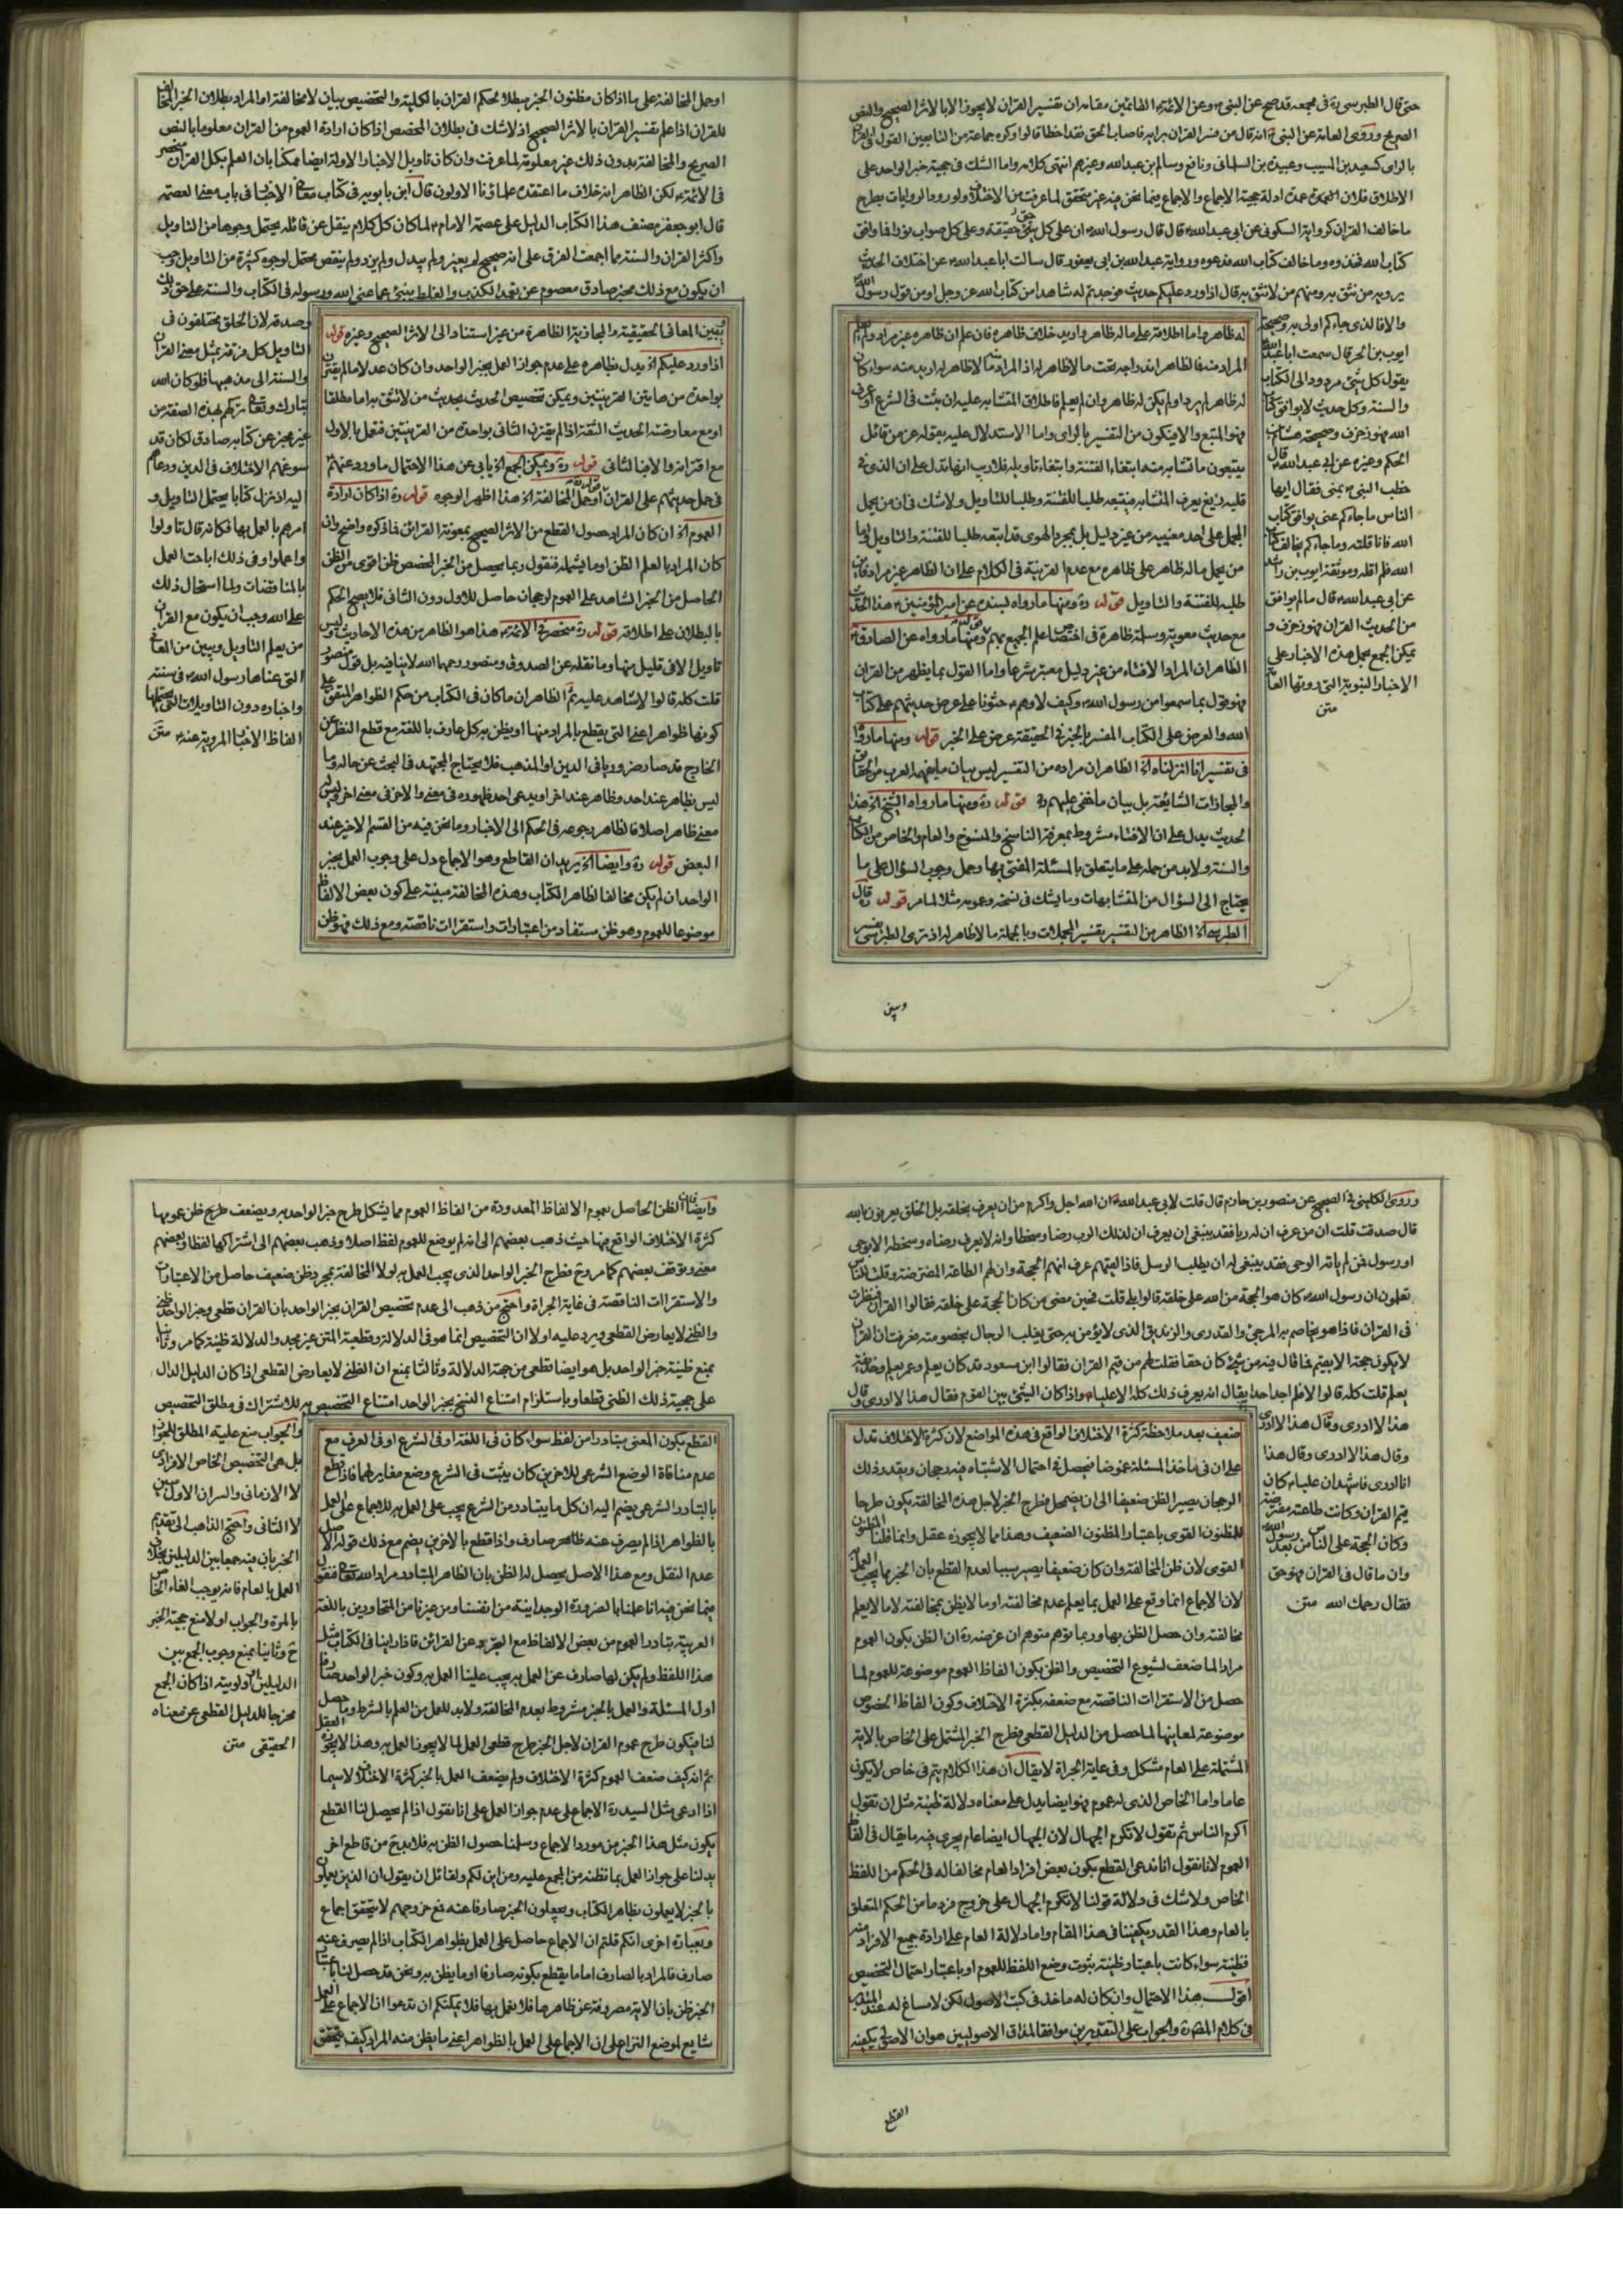 حتى قال الطبرسي ره في مجمعه قد صح عن النبي ص وعن الائمة القائمين مقامه ان تفسير القران لا يجوز الا بالاثر الصحيح والنص
الصريح وروى العامة عن النبي ص انه قال من فسر القران برايه فاصاب الحق فقد اخطا قالوا وكره جماعة من التابعين القول في القران
بالراى كسعيد بن المسيب وعبيدة بن السلماني ونافع وسالم بن عبد الله وغيرهم انتهى كلامه واما الشك في حجية خبر الواحد على
الاطلاق فلان العمدة عمدة ادلة حجية الاجماع والاجماع فيما نحن فيه غير متحقق لما عرفت من الاختلاف ولورود الروايات بطرح
ما خالف القران كرواية السكوني عن ابي عبد الله ع قال قال رسول الله ص ان على كل حق حقيقة وعلى كل صواب نورا فما وافق
كتاب الله فخذوه وما خالف كتاب الله فدعوه ورواية عبد الله بن ابي يعفور قال سالت ابا عبد الله ع عن اختلاف الحديث
يرويه من نثق به ومنهم من لا نثق به قال اذا ورد عليكم حديث فوجدتم له شاهدا من كتاب الله عز وجل او من قول رسول الله
والا فالذي جاءكم اولى به وصحيحة
ايوب بن الحر قال سمعت ابا عبد الله
يقول كل شئ مردود الى الكتاب
والسنة وكل حديث لا يوافق كتاب
الله فهو زخرف وصحيحة هشام بن
الحكم وغيره عن ابي عبد الله ع قال
خطب النبي ص بمنى فقال ايها
الناس ما جاءكم عني يوافق كتاب
الله فانا قلته وما جاءكم يخالف كتاب
الله فلم اقله وموثقة ايوب بن راشد
عن ابي عبد الله ع قال ما لم يوافق
من الحديث القران فهو زخرف و
يمكن الجمع بحمل هذه الاخبار على
الاخبار النبوية التي روتها العامة
متن
له ظاهر واما اطلاقه على ما له ظاهر واريد خلاف ظاهره فان علم ان ظاهره غير مراد ولم يعلم
المراد منه فالظاهر اندراجه تحت ما لا ظاهر له اذ المراد بما لا ظاهر له اريد منه سواء كان
له ظاهر لم يرد او لم يكن له ظاهر وان لم يعلم فاطلاق المتشابه عليه ان ثبت في الشرع او العرف
فهو المتبع والا فيكون من التفسير بالراى واما الاستدلال عليه بقوله عز من قائل
يتبعون ما تشابه منه ابتغاء الفتنة وابتغاء تاويله فلا ريب انها تدل على ان الذي في
قلبه زيغ يعرف المتشابه فيتبعه طلبا للفتنة وطلبا للتاويل ولا شك في ان من يحمل
المجمل على احد معنييه من غير دليل بل بمجرد الهوى قد اتبعه طلبا للفتنة والتاويل واما
من يحمل ما له ظاهر على ظاهره مع عدم القرينة في الكلام على ان الظاهر غير مراد فاين
طلبه للفتنة والتاويل قوله ره ومنها ما رواه بسنده عن امير المؤمنين ع هذا الحديث
مع حديث معوية وسلمة ظاهرة في اختصاص علم الجميع بهم قوله ومنها ما رواه عن الصادق ع
الظاهر ان المراد الافتاء من غير دليل معتبر شرعا واما القول بما يظهر من القران
فهو قول بما سمعوا من رسول الله ص وكيف لا وهم ع حثونا على عرض حديثهم على كتاب
الله والعرض على الكتاب المفسر بالخبر في الحقيقة عرض على الخبر قوله ومنها ما رووا
في تفسير انا انزلناه الخ الظاهر ان مراده من التفسير ليس بيان ما يفهمه العرب من الحقائق
والمجازات الشايعة بل بيان ما خفي عليهم قوله ره ومنها ما رواه الشيخ الخ هذا
الحديث يدل على ان الافتاء مشروط بمعرفة الناسخ والمنسوخ والعام والخاص من الكتاب
والسنة ولا بد من حمله على ما يتعلق بالمسئلة المفتى بها وحمل وجوب السؤال على ما
يحتاج الى السؤال من المتشابهات وما يشك في نسخه وعمومه مثلا لما مر قوله ره قال
الطبرسي الخ الظاهر من التفسير تفسير المجملات وبالجملة ما لا ظاهر له اذ نرى الطبرسي يفسر
وبين
او حمل المخالفة على ما اذا كان مظنون الخبر مبطلا لحكم القران بالكلية والتخصيص بيان لا مخالفة او المراد بطلان الخبر المخالف
للقران اذا علم تفسير القران بالاثر الصحيح اذ لا شك في بطلان المخصص اذا كان ارادة العموم من القران معلوما بالنص
الصريح والمخالفة بدون ذلك غير معلومة لما عرفت وان كان تاويل الاخبار الاولة ايضا ممكنا بان العلم بكل القران منحصر
في الائمة ع لكن الظاهر انه خلاف ما اعتقده علماؤنا الاولون قال ابن بابويه في كتاب معاني الاخبار في باب معنى العصمة
قال ابو جعفر مصنف هذا الكتاب الدليل على عصمة الامام ع لما كان كل كلام ينقل عن قائله يحتمل وجوها من التاويل
واكثر القران والسنة مما اجمعت الفرق على انه صحيح لم يغير ولم يبدل ولم يزد ولم ينقص محتمل لوجوه كثيرة من التاويل وجب
ان يكون مع ذلك مخبر صادق معصوم عن تعمد الكذب والغلط ينبئ عما عنى الله ورسوله في الكتاب والسنة على حق ذلك
وصدقه لان الخلق مختلفون في
التاويل كل فرقة تميل معنى القران
والسنة الى مذهبها فلو كان الله
تبارك وتعالى تركهم بهذه الصفة من
غير مخبر عن كتابه صادق لكان قد
سوغهم الاختلاف في الدين ودعاهم
اليه اذ نزل كتابا يحتمل التاويل و
امرهم بالعمل بها فكانه قال تاولوا
واعملوا وفي ذلك اباحة العمل
بالمناقضات ولما استحال ذلك
على الله وجب ان يكون مع القران
من يعلم التاويل ويبين من المعاني
التي عناها رسول الله ص في سنته
واخباره دون التاويلات التي يحتملها
الفاظ الاخبار المروية عنه ع متن
وتبين المعاني الحقيقية والمجازية الظاهرة من غير استناد الى الاثر الصحيح وغيره قوله
اذا ورد عليكم الخ يدل بظاهره على عدم جواز العمل بخبر الواحد وان كان عدلا ما لم يقترن
بواحدة من هاتين القرينتين ويمكن تخصيص الحديث بحديث من لا نثق به اما مطلقا
او مع معارضة الحديث الثقة اذا لم يقترن الثاني بواحدة من القرينتين فنعمل بالاول
مع اقترانه والا فبالثاني قوله ره ويمكن الجمع الخ يابى عن هذا الاحتمال ما ورد عنهم ع
في حمل حديثهم على القران قوله او حمل المخالفة الخ هذا اظهر الوجوه قوله ره اذا كان ارادة
العموم الخ ان كان المراد حصول القطع من الاثر الصحيح بمعونة القرائن فما ذكره واضح وان
كان المراد بالعلم الظن او ما يشمله فنقول ربما يحصل من الخبر المخصص ظن اقوى من الظن
الحاصل من الخبر الشاهد على العموم لرجحان حاصل للاول دون الثاني فلا يصح الحكم
بالبطلان على اطلاقه قوله ره منحصر في الائمة ع هذا هو الظاهر من هذه الاحاديث وليس
تاويل الا في قليل منها وما نقله عن الصدوق ومنصور رحمهما الله لا ينافيه بل قول منصور
قلت كله قالوا لا شاهد عليه ثم الظاهر ان ما كان في الكتاب من حكم الظواهر المتفق على
كونها ظواهر اعني التي يقطع بالمراد منها او يظن به كل عارف باللغة مع قطع النظر عن
الخارج قد صار ضروريا في الدين او المذهب فلا يحتاج المجتهد في البحث عن حاله وما
ليس بظاهر عند احد وظاهر عند اخر او يدعى احد ظهوره في معنى والاخر في معنى اخر وليس
معنى ظاهر اصلا فالظاهر رجوعه في الحكم الى الاخبار وما نحن فيه من القسم الاخير عند
البعض قوله ره وايضا الخ يريد ان القاطع وهو الاجماع دل على وجوب العمل بخبر
الواحد ان لم يكن مخالفا لظاهر الكتاب وهذه المخالفة مبنية على كون بعض الالفاظ
موضوعا للعموم وهو ظن مستفاد من اعتبارات واستقرات ناقصة ومع ذلك فهو ظن
وروى الكليني في الصحيح عن منصور بن حازم قال قلت لابي عبد الله ع ان الله اجل واكرم من ان يعرف بخلقه بل الخلق يعرفون بالله
قال صدقت قلت ان من عرف ان له ربا فقد ينبغي ان يعرف ان لذلك الرب رضا وسخطا وانه لا يعرف رضاه وسخطه الا بوحي
او رسول فمن لم ياته الوحي فقد ينبغي له ان يطلب الرسل فاذا لقيهم عرف انهم الحجة وان لهم الطاعة المفترضة وقلت للناس
تعلمون ان رسول الله ص كان هو الحجة من الله على خلقه قالوا بلى قلت فحين مضى من كان الحجة على خلقه فقالوا القران فنظرت
في القران فاذا هو يخاصم به المرجئ والقدري والزنديق الذي لا يؤمن به حتى يغلب الرجال بخصومته فعرفت ان القران
لا يكون حجة الا بقيم فما قال فيه من شئ كان حقا فقلت لهم من قيم القران فقالوا ابن مسعود قد كان يعلم وعمر يعلم وحذيفة
يعلم قلت كله قالوا لا فلم اجد احدا يقال انه يعرف ذلك كله الا عليا ع واذا كان الشئ بين القوم فقال هذا لا ادري وقال
هذا لا ادري وقال هذا لا ادري
وقال هذا لا ادري وقال هذا
انا ادري فاشهد ان عليا ع كان
قيم القران وكانت طاعته مفترضة
وكان الحجة على الناس بعد رسول الله
وان ما قال في القران فهو حق
فقال رحمك الله متن
ضعيف بعد ملاحظة كثرة الاختلاف الواقع في هذه المواضع لان كثرة الاختلاف تدل
على ان في ماخذ المسئلة غموضا فيحصل في احتمال الاشتباه فيه رجحان وبقدر ذلك
الرجحان يصير الظن ضعيفا الى ان يضمحل فطرح الخبر لاجل هذه المخالفة يكون طرحا
للمظنون القوى باعتبار المظنون الضعيف وهذا مما لا يجوزه عقل وانما قلنا المظنون
القوى لان ظن المخالفة وان كان ضعيفا يصير سببا لعدم القطع بان الخبر مما يجب العمل به
لان الاجماع انما وقع على العمل بما يعلم عدم مخالفته او ما لا يظن بمخالفته لا ما لا يعلم
مخالفته وان حصل الظن بها وربما توهم متوهم ان غرضه ره ان الظن بكون العموم
مراد الما ضعف لشيوع التخصيص والظن بكون الفاظ العموم موضوعة للعموم لما
حصل من الاستقرات الناقصة مع ضعفه بكثرة الاختلاف وكون الفاظ الخصوص
موضوعة لمعانيها لما حصل من الدليل القطعي فطرح الخبر المشتمل على الخاص بالاية
المشتملة على العام مشكل وفي غاية الجراة لا يقال ان هذا الكلام يتم في خاص لا يكون
عاما واما الخاص الذي له عموم فهو ايضا يدل على معناه دلالة ظنية مثل ان تقول
اكرم الناس ثم تقول لا تكرم الجهال لان الجهال ايضا عام يجري فيه ما يقال في الفاظ
العموم لانا نقول انا ندعي القطع بكون بعض افراد العام مخالفا له في الحكم من اللفظ
الخاص ولا شك في دلالة قولنا لا تكرم الجهال على خروج فرد ما من الحكم المتعلق
بالعام وهذا القدر يكفينا في هذا المقام واما دلالة العام على ارادة جميع الافراد منه
فظنية سواء كانت باعتبار ظنية ثبوت وضع اللفظ للعموم او باعتبار احتمال التخصيص
اقول هذا الاحتمال وان كان له ماخذ في كتب الاصول لكن لا مساغ له عند المتدبر
في كلام المص ره والجواب على التقديرين موافقا لمذاق الاصوليين هو ان الاصولي يكفيه
القطع
وايضا فان الظن الحاصل بعموم الالفاظ المعدودة من الفاظ العموم مما يشكل طرح خبر الواحد به ويضعف طرح ظن عمومها
كثرة الاختلاف الواقع فيها حيث ذهب بعضهم الى انه لم يوضع للعموم لفظ اصلا وذهب بعضهم الى اشتراكها لفظا وبعضهم
معنى وتوقف بعضهم كما مر وح فطرح الخبر الواحد الذي يجب العمل به لولا المخالفة بمجرد ظن ضعيف حاصل من الاعتبارات
والاستقراات الناقصة في غاية الجراة واحتج من ذهب الى عدم تخصيص القران بخبر الواحد بان القران قطعي وخبر الواحد ظني
والظني لا يعارض القطعي ويرد عليه اولا ان التخصيص انما هو في الدلالة وقطعية المتن غير مجد والدلالة ظنية كما مر وثانيا
بمنع ظنية خبر الواحد بل هو ايضا قطعي من جهة الدلالة وثالثا بمنع ان الظني لا يعارض القطعي اذا كان الدليل الدال
على حجية ذلك الظني قطعا وباستلزام امتناع النسخ بخبر الواحد امتناع التخصيص به للاشتراك في مطلق التخصيص
والجواب منع علية المطلق للجواز
بل هي التخصيص الخاص الافرادي
لا الازماني والسر ان الاول مبين
لا الثاني واحتج الذاهب الى تقديم
الخبر بان فيه جمعا بين الدليلين بخلاف
العمل بالعام فانه يوجب الغاء الخاص
بالمرة والجواب اولا منع حجية الخبر
ح وثانيا بمنع وجوب الجمع بين
الدليلين واولويته اذا كان الجمع
مخرجا للدليل القطعي عن معناه
الحقيقي متن
القطع بكون المعنى متبادرا من لفظ سواء كان في اللغة او في الشرع او في العرف مع
عدم منافاة الوضع الشرعي للاخرين كان يثبت في الشرع وضع مغاير لهما فاذا قطع
بالتبادر الشرعي يضم اليه ان كل ما يتبادر من الشرع يجب على العمل به للاجماع على العمل
بالظواهر اذا لم يصرف عنه ظاهر صارف واذا قطع بالاخرين يضم مع ذلك قوله الاصل
عدم النقل ومع هذا الاصل يحصل له الظن بان الظاهر المتبادر مراد الله تعالى فنقول
فيما نحن فيه انا علمنا بالضرورة الوجدانية من انفسنا ومن غيرنا من المتحاورين باللغة
العربية بتبادر العموم من بعض الالفاظ مع التجرد عن القرائن فاذا راينا في الكتاب مثل
هذا اللفظ ولم يكن لها صارف عن العمل به يجب علينا العمل به وكون خبر الواحد صارفا
اول المسئلة والعمل بالخبر مشروط بعدم المخالفة ولا بد للعمل من العلم بالشرط وما حصل
لنا فيكون طرح عموم القران لاجل الخبر طرح قطعي العمل لما لا يجوز لنا العمل به وهذا لا يجوزه العقل
ثم انه كيف ضعف العموم كثرة الاختلاف ولم يضعف العمل بالخبر كثرة الاختلاف لا سيما
اذا ادعى مثل السيد ره الاجماع على عدم جواز العمل على انا نقول اذا لم يحصل لنا القطع
بكون مثل هذا الخبر من مورد الاجماع وسلمنا حصول الظن به فلا بد ح من قاطع اخر
يدلنا على جواز العمل بما نظنه من المجمع عليه ومن اين لكم ولقائل ان يقول ان الذين يعملون
بالخبر لا يعملون بظاهر الكتاب ويجعلون الخبر صارفا عنه فمع خروجهم لا يتحقق اجماع
وبعبارة اخرى انكم قلتم ان الاجماع حاصل على العمل بظواهر الكتاب اذا لم يصرف عنه
صارف فالمراد بالصارف اما ما يقطع بكونه صارفا او ما يظن به ونحن قد حصل لنا باعتبار
الخبر ظن بان الاية مصروفة عن ظاهرها فلا نعمل بها فلا يمكنكم ان تدعوا ان الاجماع على العمل
شايع لموضع النزاع على ان الاجماع على العمل بالظواهر اعني ما يظن منه المراد كيف يتحقق